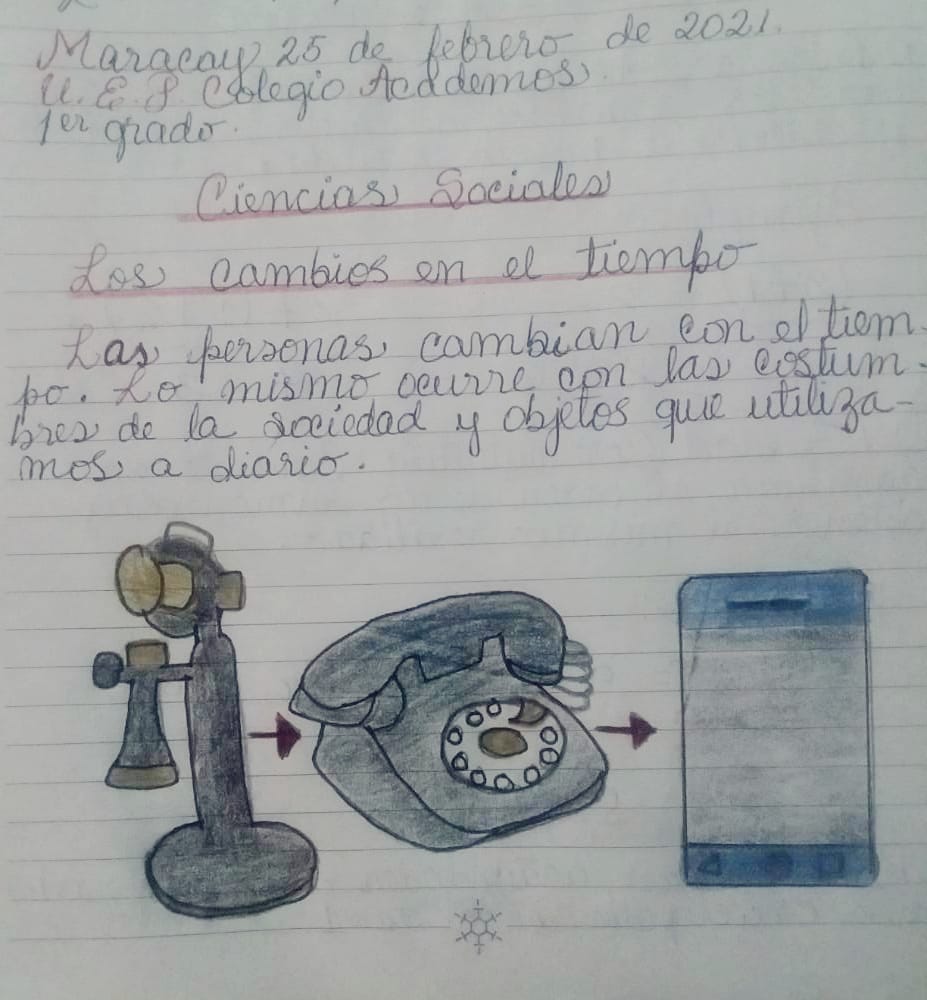 Maracay 25 de febrero de 2021.
U.E.P Colegio Acddemos
1er grado.
Ciencias Sociales
Los cambios en el tiempo
Las personas cambian con el tiem-
po. Lo mismo ocurre con las costum-
bres de la sociedad y objetos que utiliza-
mos a diario.